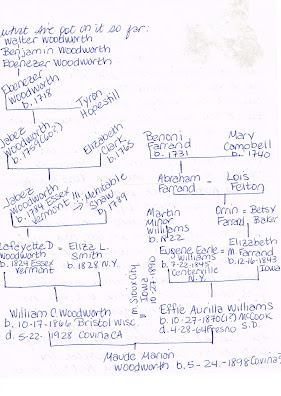 what I've got on it so far:
Walter Woodworth
Benjamin Woodworth
Ebenezer Woodworth
Ebenezer
Woodworth
b. 1718
Tyron
Hopestill
Jabez
Woodworth
b. 1759(60?)
Elizabeth
Clark
b. 1765
Benoni
Farrand
b. 1731
Mary
Campbell
b. 1740
Jabez
Woodworth
b. 1784 Essex
Vermont
Mehitable
Shaw
b. 1789
Abraham
Farrand
Lois
Felton
Martin
Minor
Williams
b. 1822
Orrin = Betsy
Farrand Baker
Lafayette D =
Woodworth
b. 1824 Essex
Vermont
Eliza L.
Smith
b. 1828 N.Y.
Eugene Earle =
Williams
b. 7-22-1845
Centerville
N.Y.
Elizabeth
M Farrand
b. 12-16-1843
Iowa
m. Sioux City
Iowa
10-27-1890
William C. Woodworth
b. 10-17-1866 Bristol Wisc.
d. 5-22-1928 Covina CA
Effie Aurilla Williams
b. 10-27-1870(1?) McCook
d. 4-28-64 Fresno S.D.
Maude Marion
Woodworth b. 5-24-1898 Covina